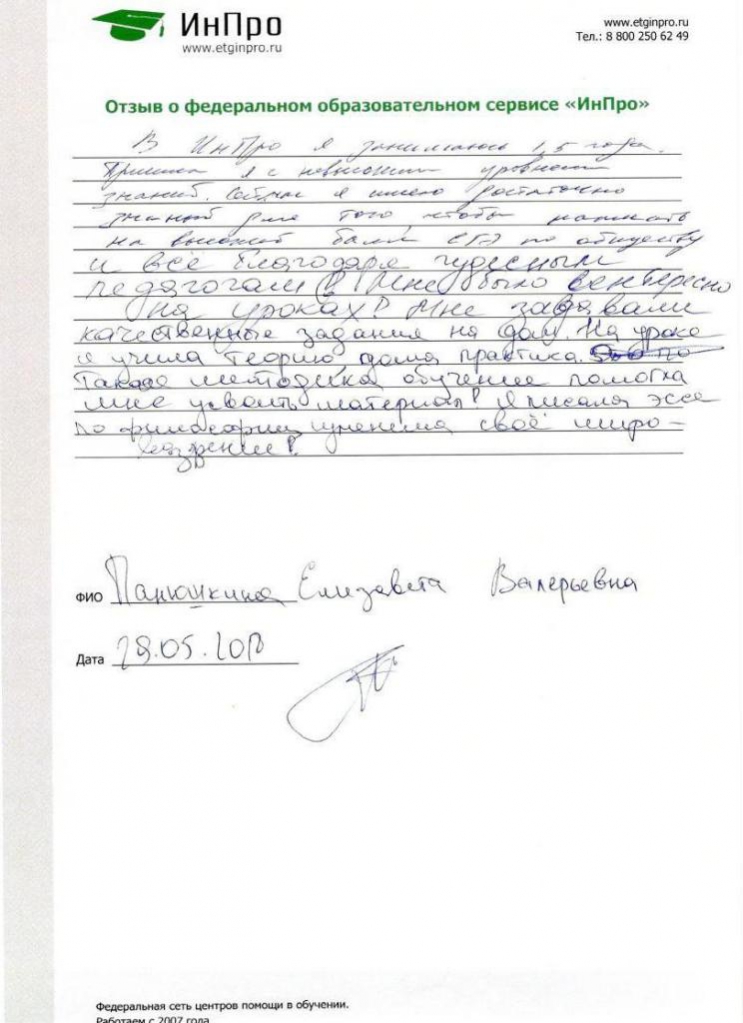 ИнПро
www.etginpro.ru
www.etginpro.ru
Тел.: 8 800 250 62 49
Отзыв о федеральном образовательном сервисе «ИнПро»
В ИнПро я занимаюсь 1,5 года.
Пришла я с невысоким уровнем
знаний. Сейчас я имею достаточно
знаний для того, чтобы написать
на высокий балл ЕГЭ по обществу
и всё благодаря чудесным
педагогам! Мне было интересно
на уроках! Мне задавали
качественные задания на дом. На уроке
я учила теорию, дома практика.
Такая методика обучения помогла
мне усвоить материал! Я писала эссе
по философии, изменила своё миро-
воззрение!
ФИО Панюшкина Елизавета Валерьевна
Дата 28.05.2018
Федеральная сеть центров помощи в обучении.
Работаем с 2007 года